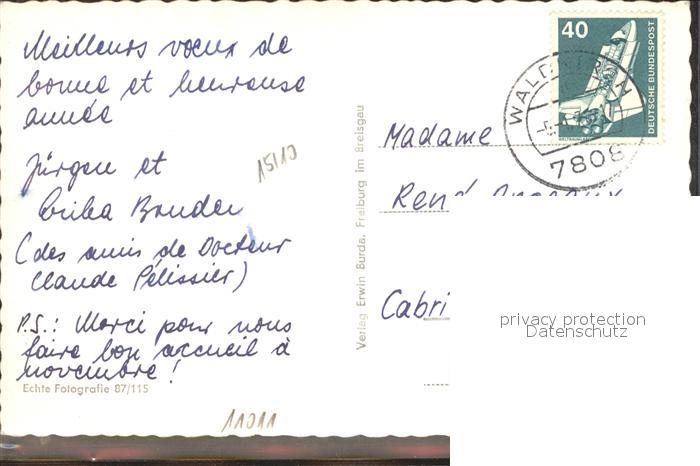 Meilleurs vœux de
bonne et heureuse
année
Jürgen et
Erika Bruder
(des amis de Docteur
Claude Pélissier)
P.S.: Merci pour nous
faire bon accueil à
novembre!
Echte Fotografie 87/115
15/10
11011
Verlag Erwin Burda, Freiburg im Breisgau
40
DEUTSCHE BUNDESPOST
WALD
7808
Madame
René
Cabri
privacy protection
Datenschutz